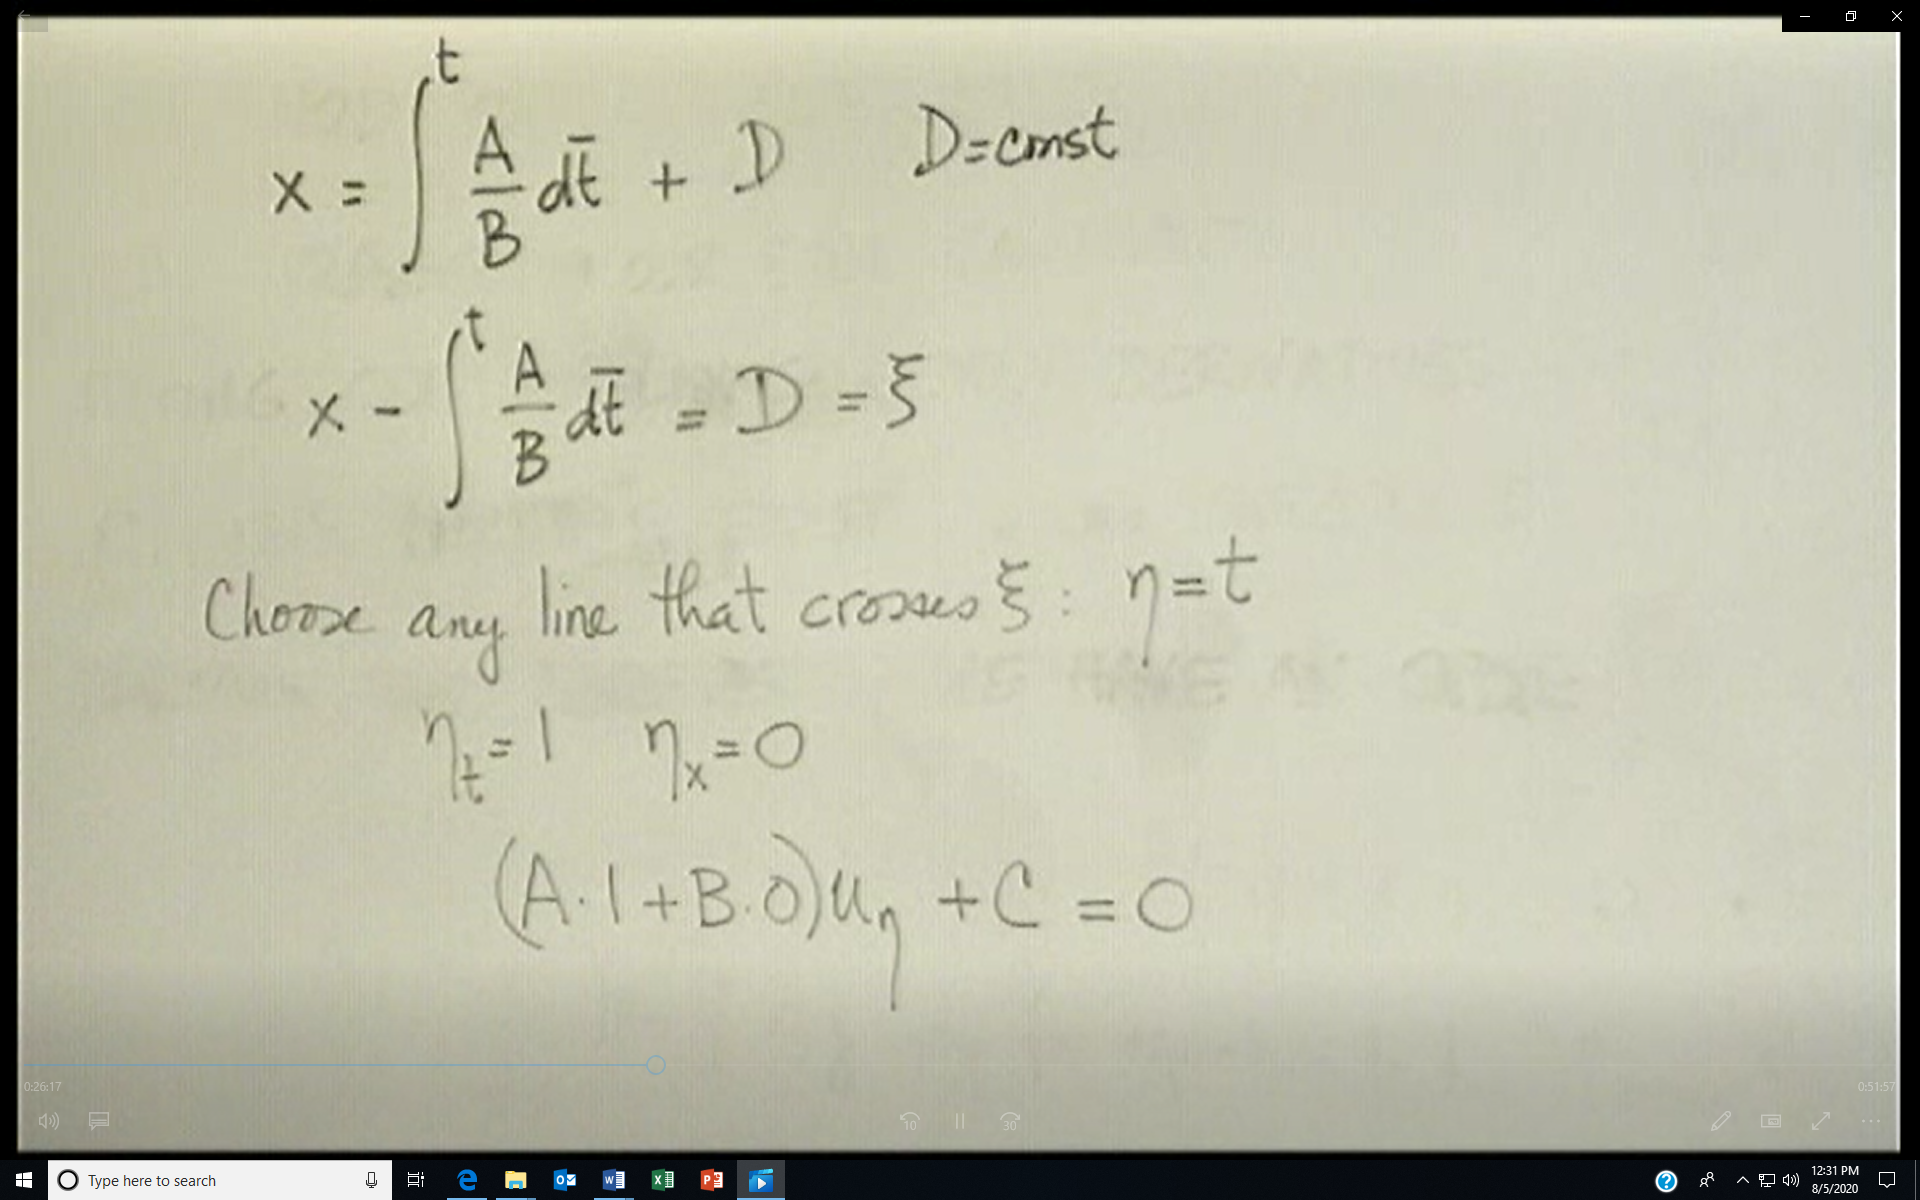 x = ∫^t A/B dt̄ + D   D=const
x - ∫^t A/B dt̄ = D = ξ
Choose any line that crosses ξ : η=t
η_t=1   η_x=0
(A·1+B·0)u_η + C = 0
0:26:17   0:51:57
10   30
Type here to search
12:31 PM
8/5/2020